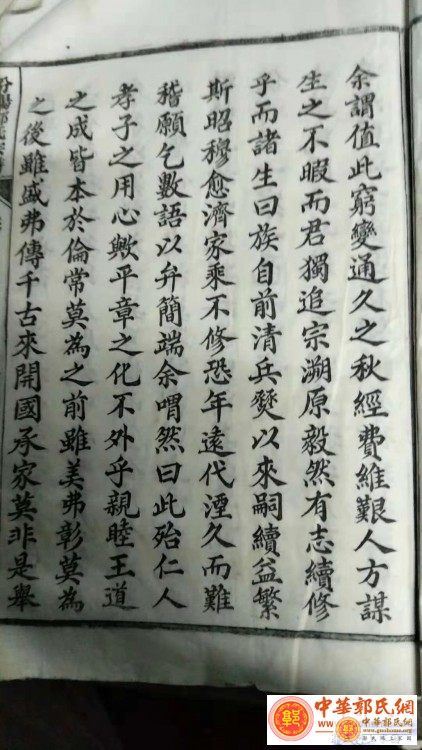 余謂值此窮變通久之秋經費維艱人方謀
生之不暇而君獨追宗溯原毅然有志續修
乎而諸生曰族自前清兵燹以來嗣續益繁
斯昭穆愈濟家乘不修恐年遠代湮久而難
稽願乞數語以弁簡端余喟然曰此殆仁人
孝子之用心歟平章之化不外乎親睦王道
之成皆本於倫常莫為之前雖美弗彰莫為
之後雖盛弗傳千古來開國承家莫非是舉
中華郭氏網
中華郭氏網
www.guohome.org